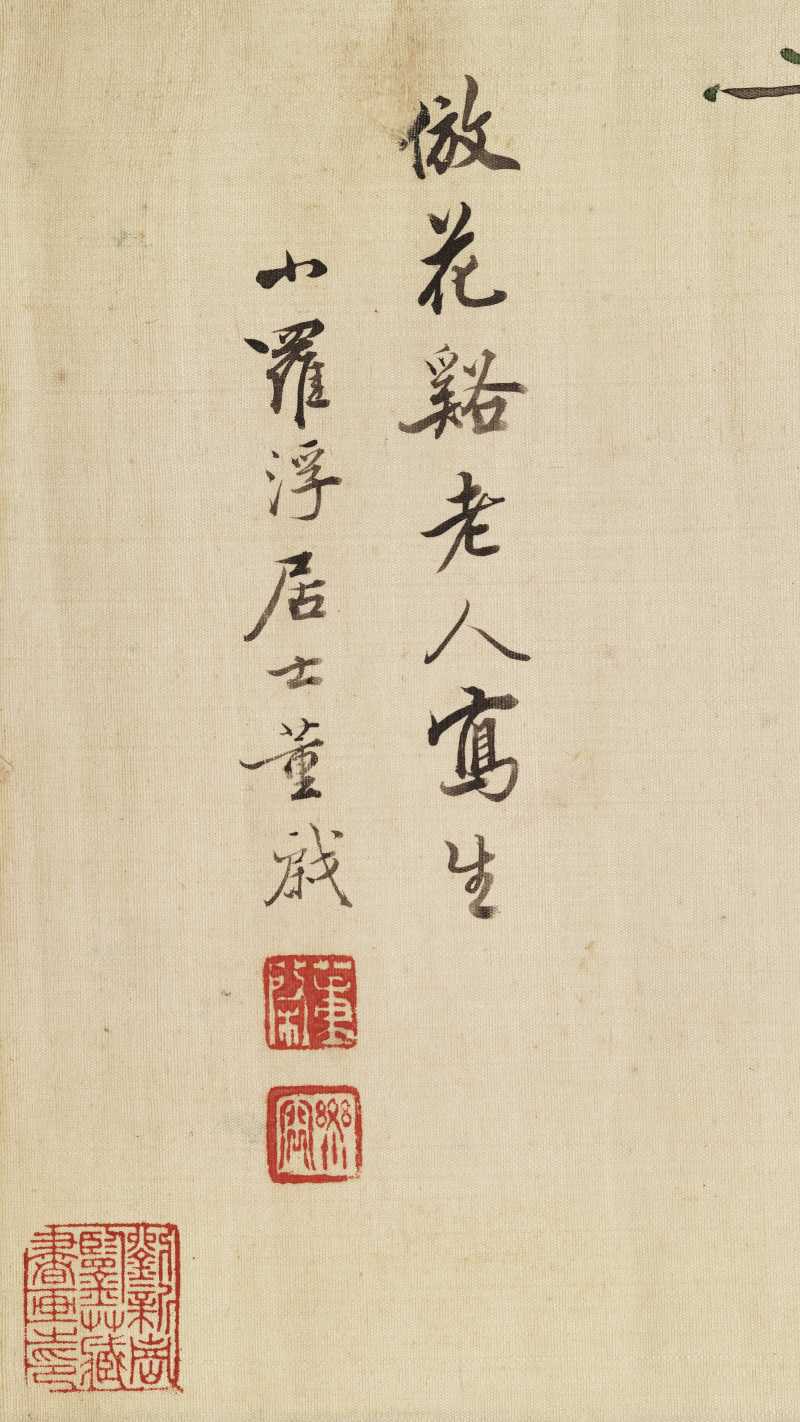 倣花谿老人寫生
小羅浮居士董棨
董棨
劉新鑒藏書畫之印